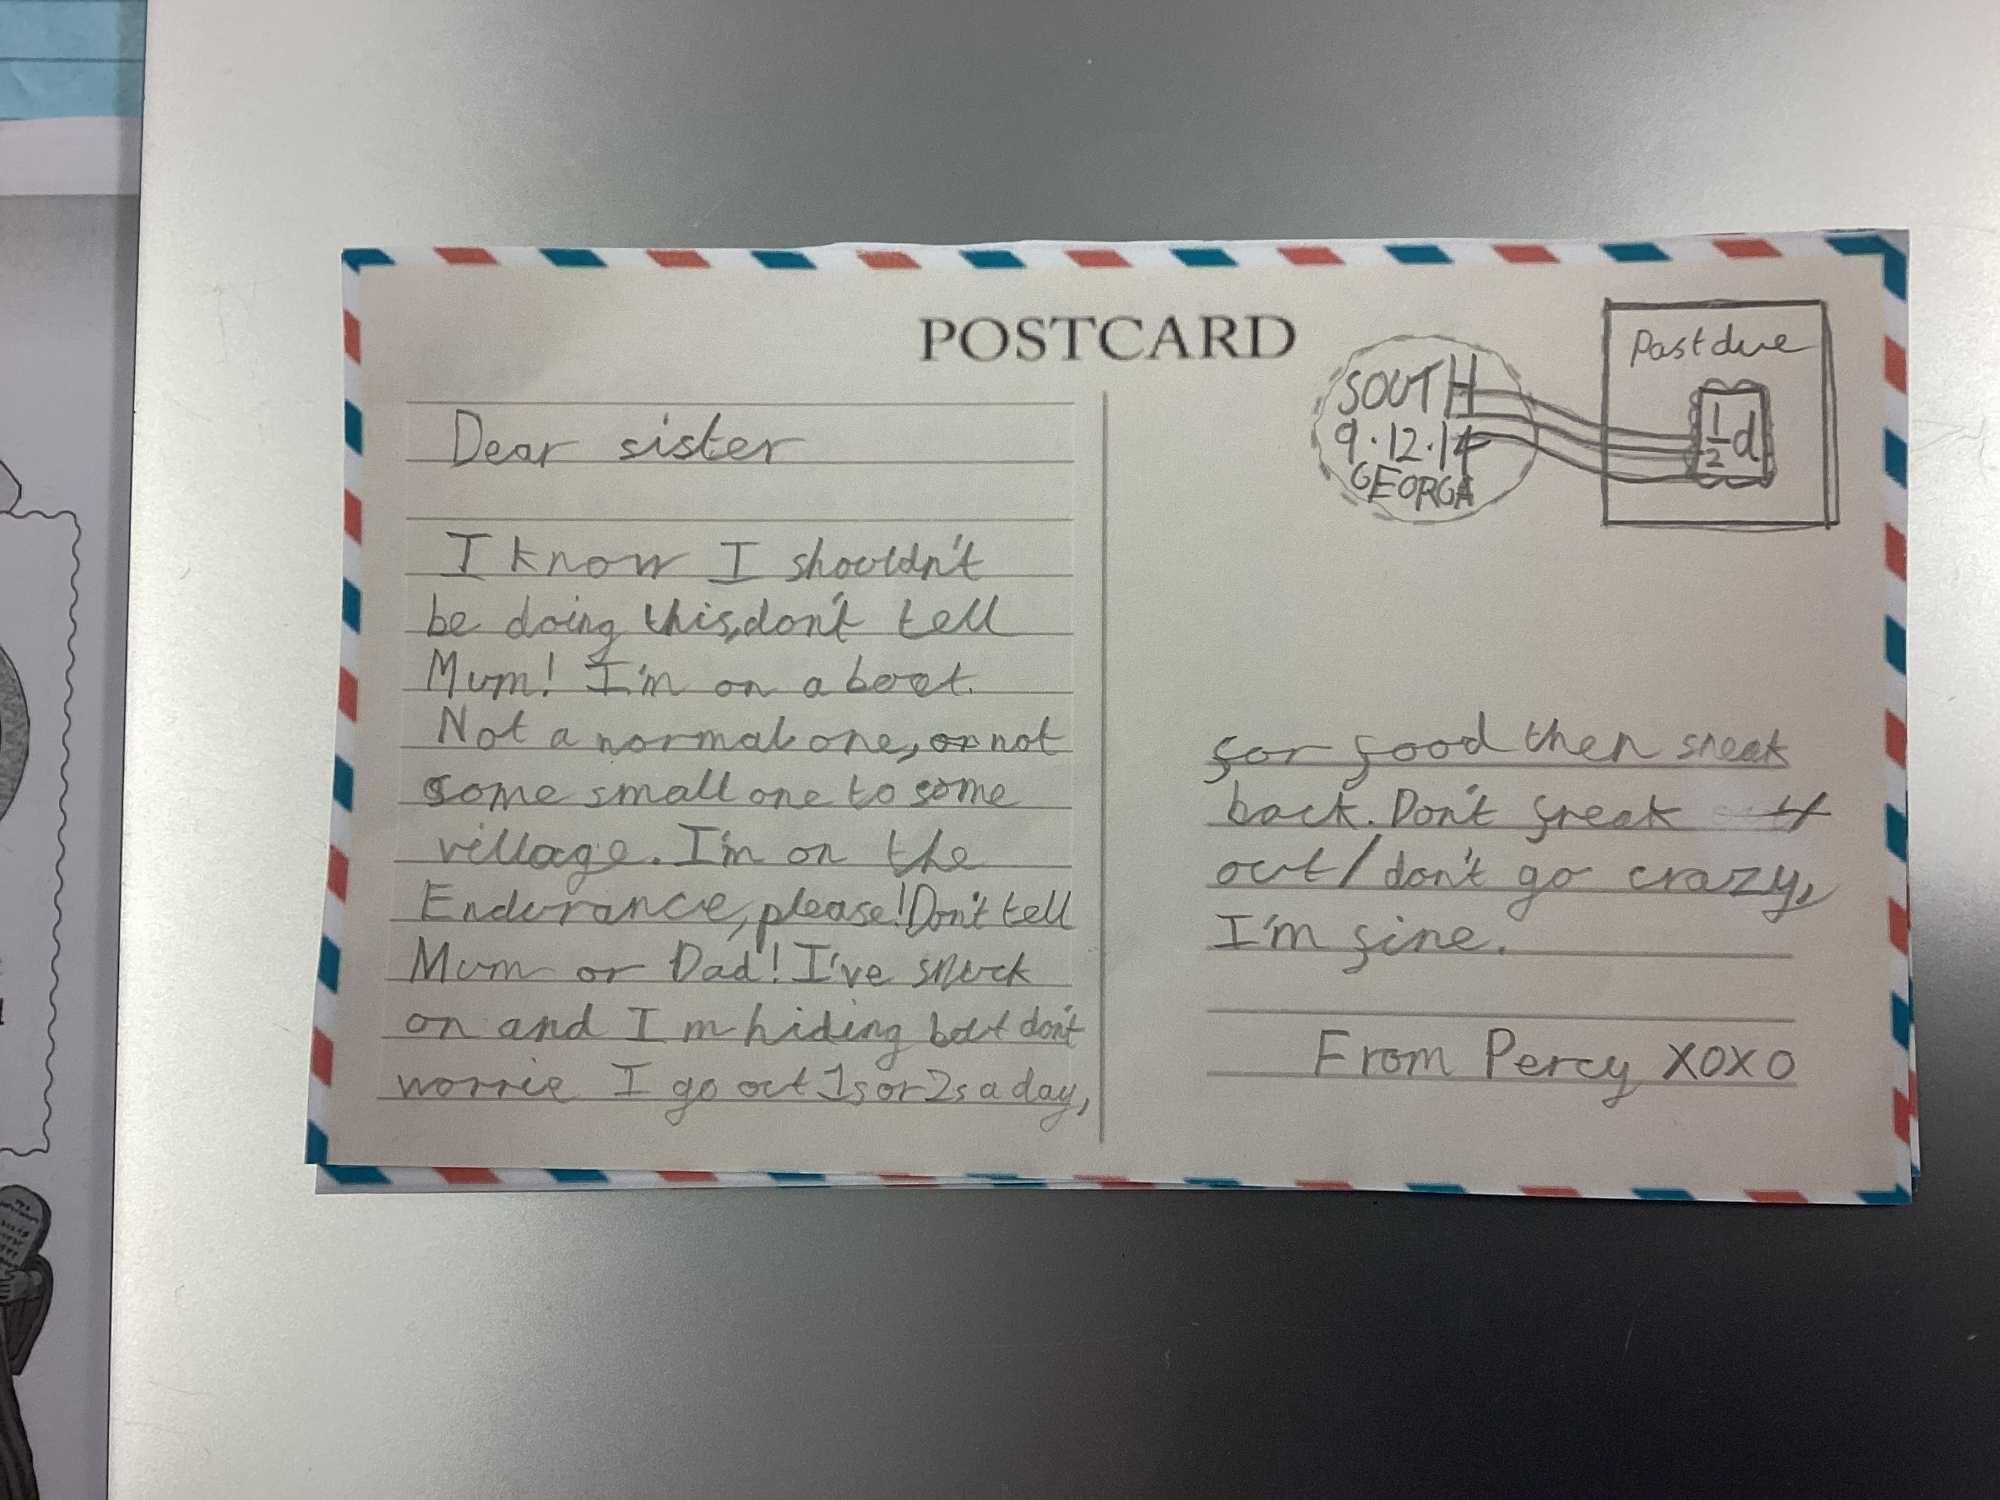 POSTCARD
Dear sister
I know I shouldn't
be doing this, don't tell
Mum! I'm on a boat.
Not a normal one, or not
some small one to some
village. I'm on the
Endurance, please! Don't tell
Mum or Dad! I've snuck
on and I'm hiding but don't
worrie I go out 1s or 2s a day,
SOUTH
9.12.14
GEORGA
Past due
1/2 d
for food then sneak
back. Don't freak
out/don't go crazy,
I'm fine.
From Percy XOXO